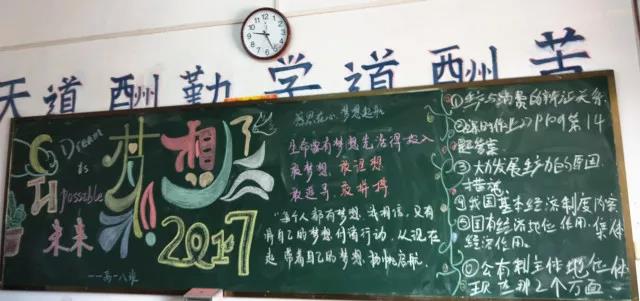 天道酬勤 学道酬苦
Dream
is
possable
未来
梦想
2017
——高一八班
感恩在心 梦想起航
生命要有梦想
敢梦想 敢追想
敢追寻 敢拼搏
"每个人都有梦想,我相信,只有
将自己的梦想付诸行动,从现在
起 带着自己的梦想,扬帆启航
①生产与消费的辩证关系
②课时作业》P109第14
题答案
③大力发展生产力的原因
措施
④我国基本经济制度内容
⑤国有经济地位 作用、集体
经济作用。
⑥公有制主体地位体
现在那2个方面